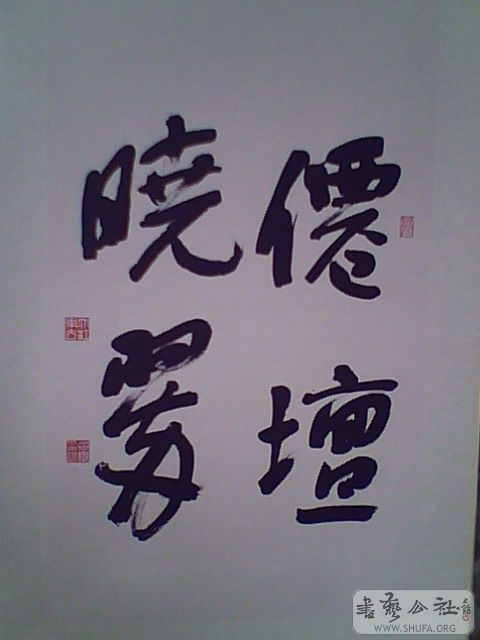 僊壇
曉翠
書藝公社
WWW.SHUFA.ORG